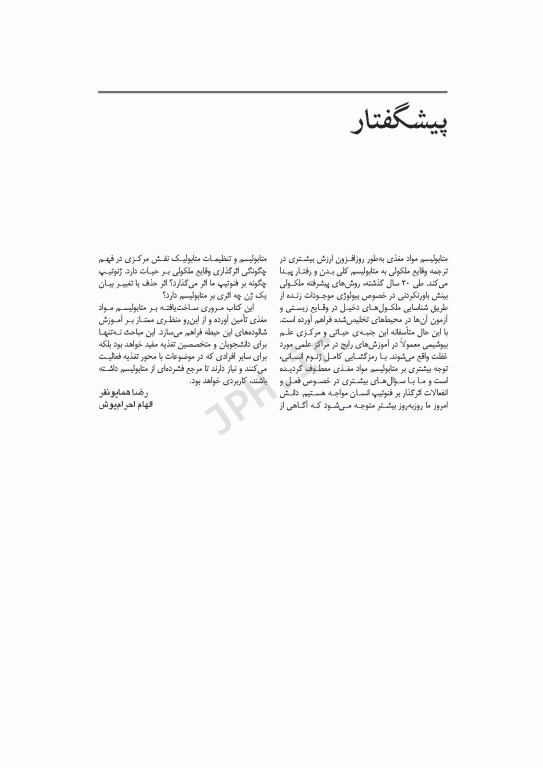 پیشگفتار
متابولیسم مواد مغذی به‌طور روزافزون ارزش بیشتری در
ترجمه وقایع ملکولی به متابولیسم کلی بدن و رفتار پیدا
می‌کند. طی ۲۰ سال گذشته، روش‌های پیشرفته ملکولی
بینش باورنکردنی در خصوص بیولوژی موجودات زنده از
طریق شناسایی ملکول‌های دخیل در وقایع زیستی و
آزمون آن‌ها در محیط‌های تخلیص‌شده فراهم آورده است.
با این حال متأسفانه این جنبه‌ی حیاتی و مرکزی علم
بیوشیمی معمولاً در آموزش‌های رایج در مراکز علمی مورد
غفلت واقع می‌شوند. با رمزگشایی کامل ژنوم انسانی،
توجه بیشتری بر متابولیسم مواد مغذی معطوف گردیده
است و ما با سؤال‌های بیشتری در خصوص فعل و
انفعالات اثرگذار بر فنوتیپ انسان مواجه هستیم. دانش
امروز ما روزبه‌روز بیشتر متوجه می‌شود که آگاهی از
متابولیسم و تنظیمات متابولیک نقش مرکزی در فهم
چگونگی اثرگذاری وقایع ملکولی بر حیات دارد. ژنوتیپ
چگونه بر فنوتیپ ما اثر می‌گذارد؟ اثر حذف یا تغییر بیان
یک ژن چه اثری بر متابولیسم دارد؟
این کتاب مروری ساخت‌یافته بر متابولیسم مواد
مغذی تأمین آورده و از این‌رو منظری ممتاز بر آموزش
شالوده‌های این حیطه فراهم می‌سازد. این مباحث نه‌تنها
برای دانشجویان و متخصصین تغذیه مفید خواهد بود بلکه
برای سایر افرادی که در موضوعات با محور تغذیه فعالیت
می‌کنند و نیاز دارند تا مرجع فشرده‌ای از متابولیسم داشته
باشند، کاربردی خواهد بود.
رضا همایونفر
الهام احرام‌پوش
JPH